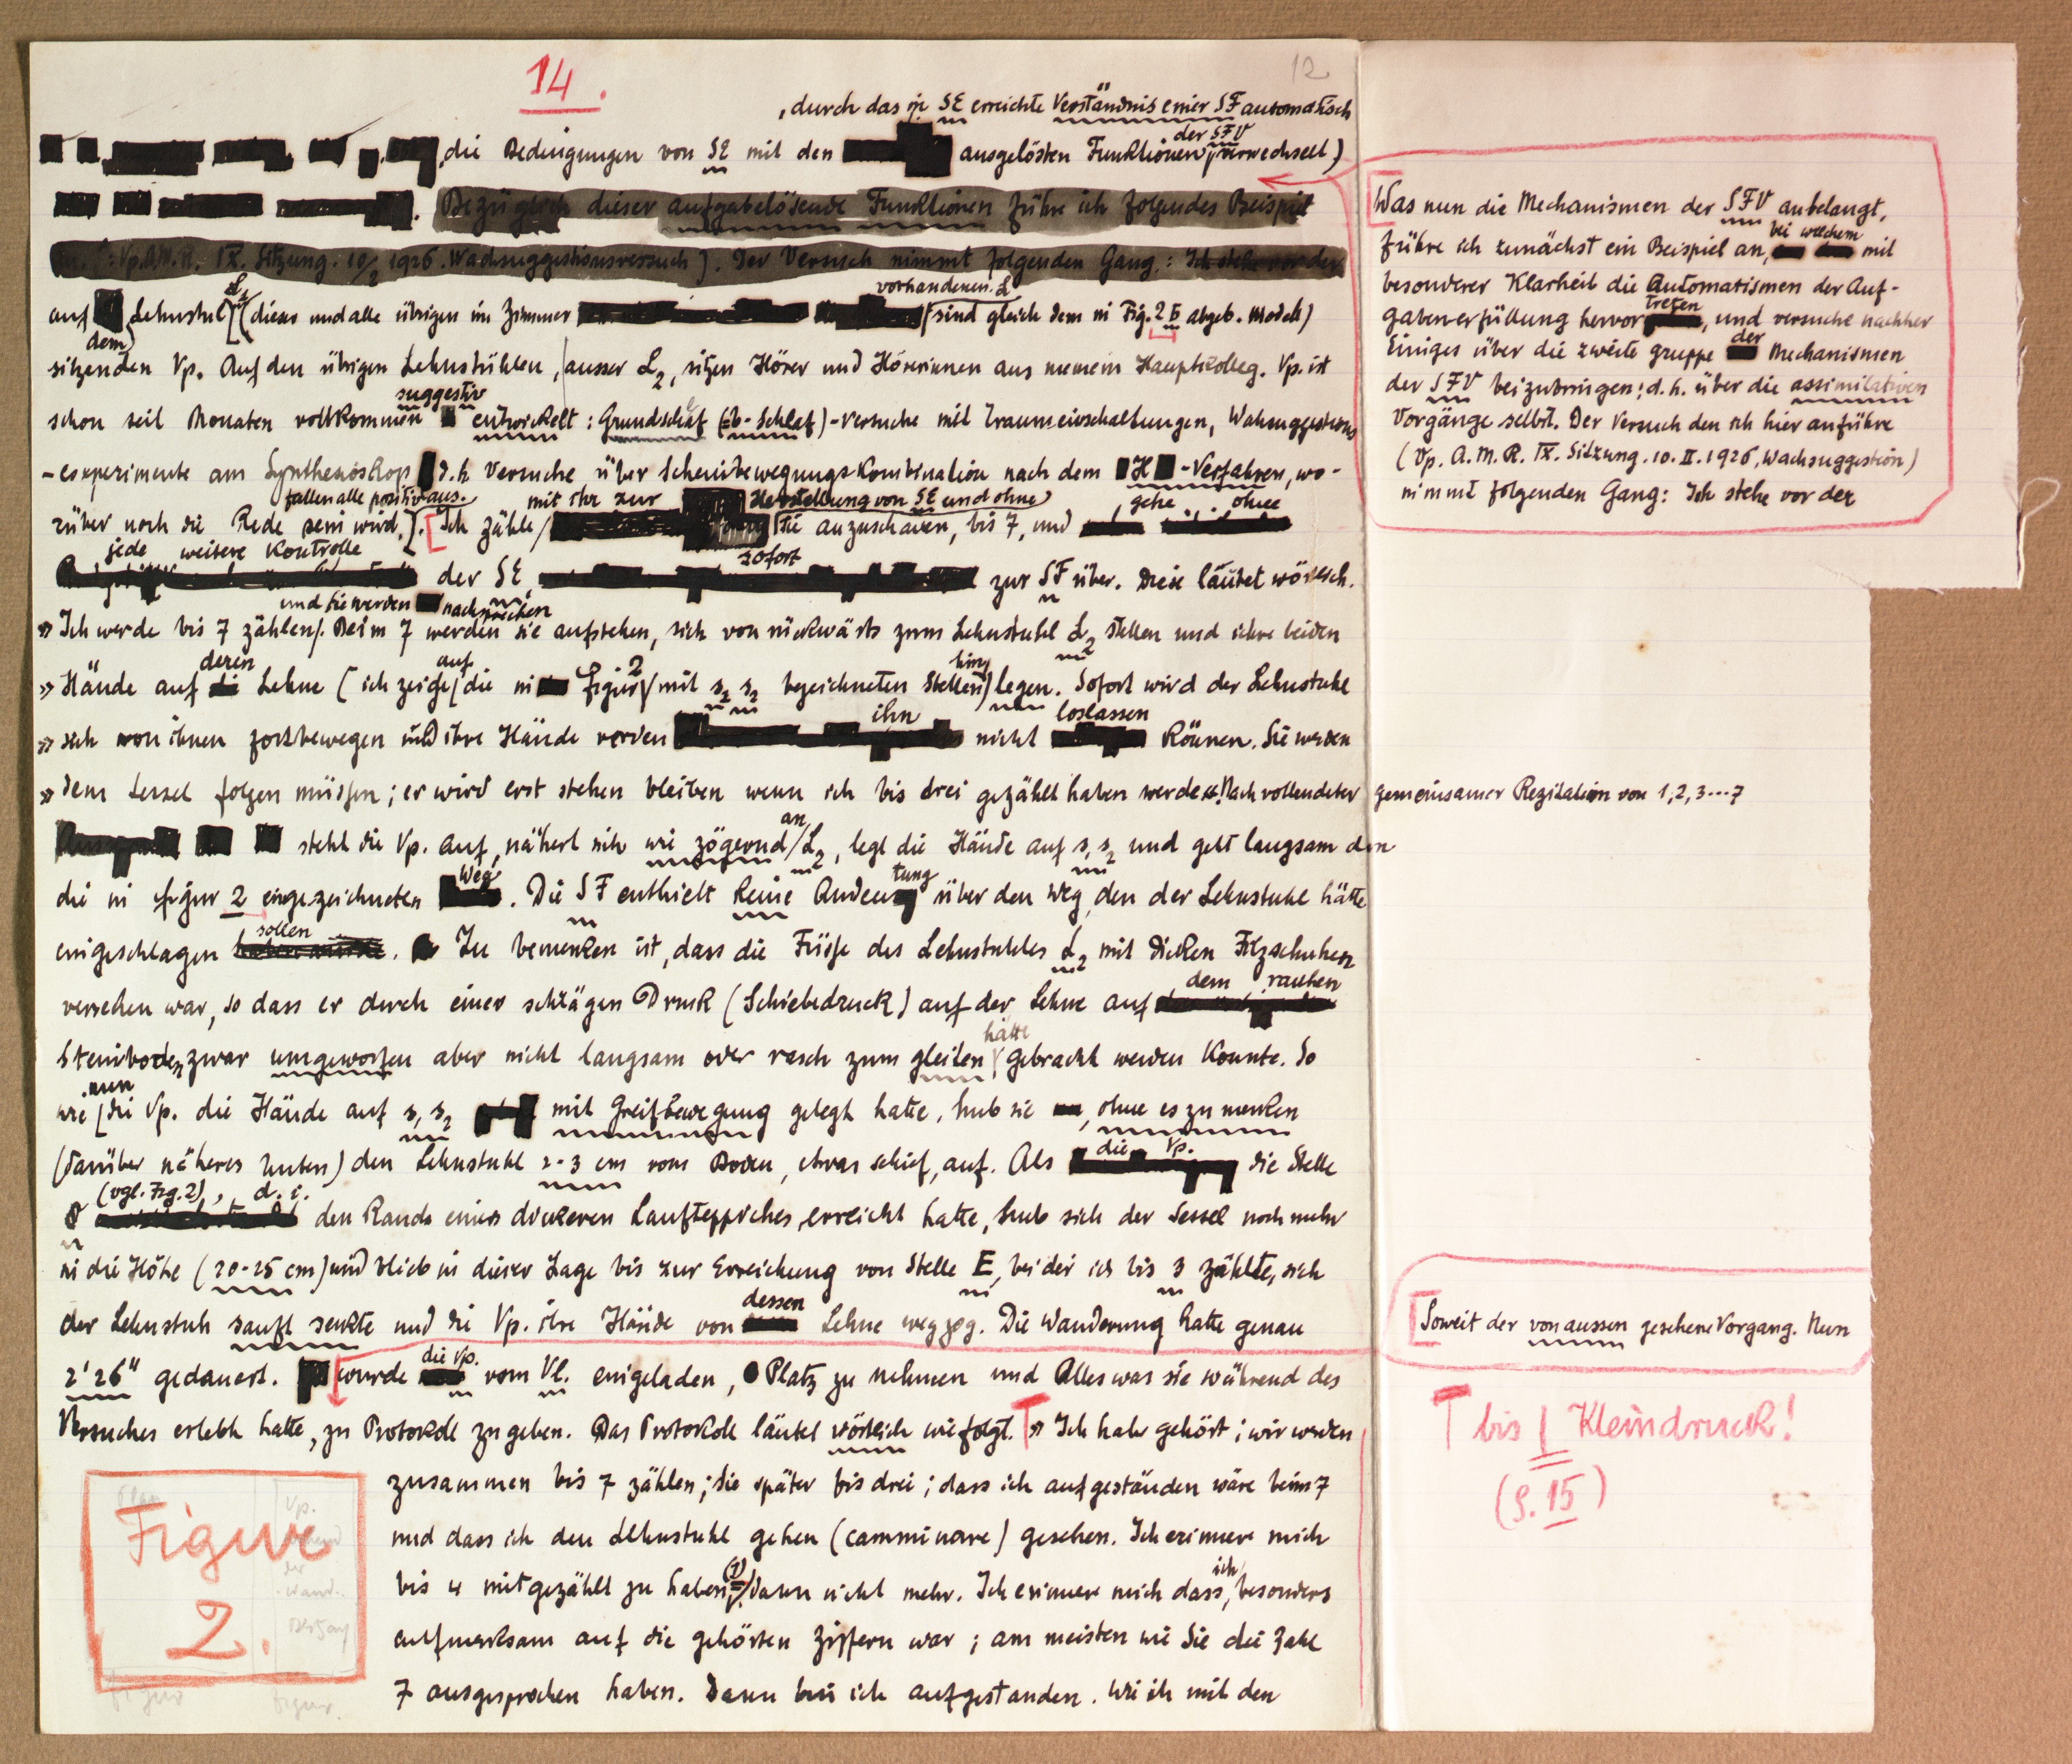 14.
12
, durch das in SE erreichte Verständnis einer SF automatisch
der SFV
die Bedingungen von SE mit den ausgelösten Funktionen verwechselt)
Bezüglich dieser aufgabelösende Funktionen führe ich folgendes Beispiel
an. (: Vp. A.M.R. IX. Sitzung. 10/2 1926. Wachsuggestionsversuch). Der Versuch nimmt folgenden Gang: Ich stehe vor der
vorhandenen L
auf dem Lehnstuhl L1 (dieser und alle übrigen im Zimmer sind gleich dem in Fig. 2 b abgeb. Modell)
sitzenden Vp. Auf den übrigen Lehnstühlen, ausser L2, sitzen Hörer und Hörerinnen aus meinem Hauptkolleg. Vp. ist
suggestiv
schon seit Monaten vollkommen entwickelt: Grundschlaf (=b-Schlaf)-versuche mit Traumeinschaltungen, Wahnsuggestions
-experimente am Synthenoskop d.h. Versuche über Scheinbewegungs-Kombination nach dem H-Verfahren, wo-
fallen alle positiv aus. mit ihr zur Herstellung von SE und ohne gehe ohne
rüber noch die Rede sein wird,). Ich zähle sie anzuschauen, bis 7, und
jede weitere Kontrolle sofort
der SE zur SF über. Diese läutet wörtlich.
und sie werden nachsprechen
» Ich werde bis 7 zählen. Beim 7 werden sie aufstehen, sich von rückwärts zum Lehnstuhl L2 stellen und ihre beiden
deren auf 2 hin
» Hände auf Lehne (ich zeige die in Figur mit s1 s2 bezeichneten Stellen) legen. Sofort wird der Lehnstuhl
ihn loslassen
» sich von ihnen fortbewegen und ihre Hände werden nicht können. Sie werden
» dem Sessel folgen müssen; er wird erst stehen bleiben wenn ich bis drei gezählt haben werde«. Nach vollendeter gemeinsamer Rezitation von 1,2,3...7
an
steht die Vp. auf, nähert sich wie zögernd L2, legt die Hände auf s1 s2 und geht langsam den
Weg tung
die in Figur 2 eingezeichneten. Die SF enthielt keine Andeutung über den Weg, den der Lehnstuhl hätte
sollen
eingeschlagen. Zu bemerken ist, dass die Füsse des Lehnstuhles L2 mit dicken Filzschuhen
dem rauhen
versehen war, so dass er durch einen schrägen Druck (Schiebedruck) auf der Lehne auf
hätte
Steinboden, zwar umgeworfen aber nicht langsam oder rasch zum gleiten gebracht werden konnte. So
nun
wie die Vp. die Hände auf s1 s2 mit Greifbewegung gelegt hatte, hub sie, ohne es zu merken
(darüber näheres unten) den Lehnstuhl 2-3 cm vom Boden, etwas schief, auf. Als die Vp. die Stelle
(vgl. Fig. 2), d. i.
den Rande eines dickeren Laufteppiches, erreicht hatte, hub sich der Sessel noch mehr
in die Höhe (20-25 cm) und blieb in dieser Lage bis zur Erreichung von Stelle E, bei der ich bis 3 zählte, sich
dessen
der Lehnstuh sanft senkte und die Vp. ihre Hände von Lehne wegzog. Die Wanderung hatte genau
die Vp.
2'26" gedauert. wurde vom Vl. eingeladen, Platz zu nehmen und Alles was sie während des
Versuches erlebt hatte, zu Protokoll zu geben. Das Protokoll läutet wörtlich wie folgt. » Ich habe gehört; wir werden
zusammen bis 7 zählen; Sie später bis drei; dass ich aufgestanden wäre beim 7
und dass ich den Lehnstuhl gehen (camminare) gesehen. Ich erinnere mich
bis 4 mitgezählt zu haben dann nicht mehr. Ich erinnere mich dass ich, besonders
aufmerksam auf die gehörten Ziffern war; am meisten wie Sie die Zahl
7 ausgesprochen haben. Dann bin ich aufgestanden. Wie ich mit den
Figur
2.
Was nun die Mechanismen der SFV anbelangt,
führe ich zunächst ein Beispiel an, bei welchem mit
besonderer Klarheit die Automatismen der Auf-
gabenerfüllung hervortreten, und versuche nachher
Einiges über die zweite Gruppe der Mechanismen
der SFV beizubringen; d.h. über die assimilativen
Vorgänge selbst. Der Versuch den ich hier anführe
(Vp. A. M. R. IX. Sitzung. 10. II. 1926, Wachsuggestion)
nimmt folgenden Gang: Ich stehe vor der
Soweit der von aussen gesehene Vorgang. Nun
bis Kleindruck!
(S. 15)